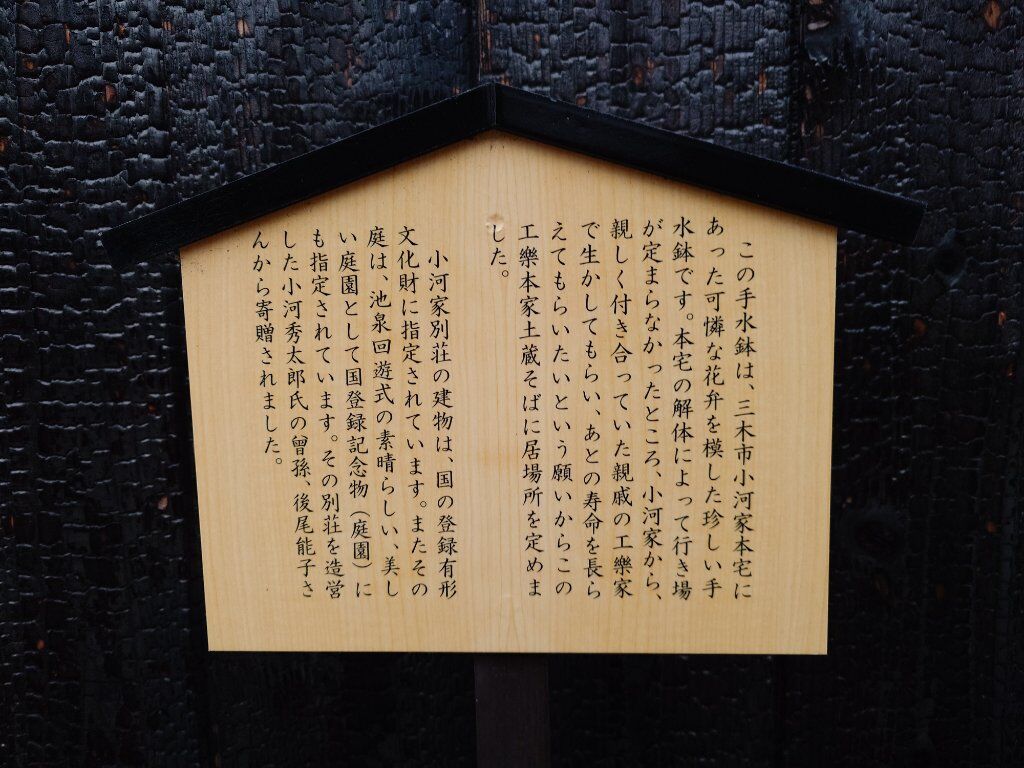 この手水鉢は、三木市小河家本宅に
あった可憐な花弁を模した珍しい手
水鉢です。本宅の解体によって行き場
が定まらなかったところ、小河家から、
親しく付き合っていた親戚の工樂家
で生かしてもらい、あとの寿命を長ら
えてもらいたいという願いからこの
工樂本家土蔵そばに居場所を定めま
した。
小河家別荘の建物は、国の登録有形
文化財に指定されています。またその
庭は、池泉回遊式の素晴らしい、美し
い庭園として国登録記念物（庭園）に
も指定されています。その別荘を造営
した小河秀太郎氏の曾孫、後尾能子さ
んから寄贈されました。